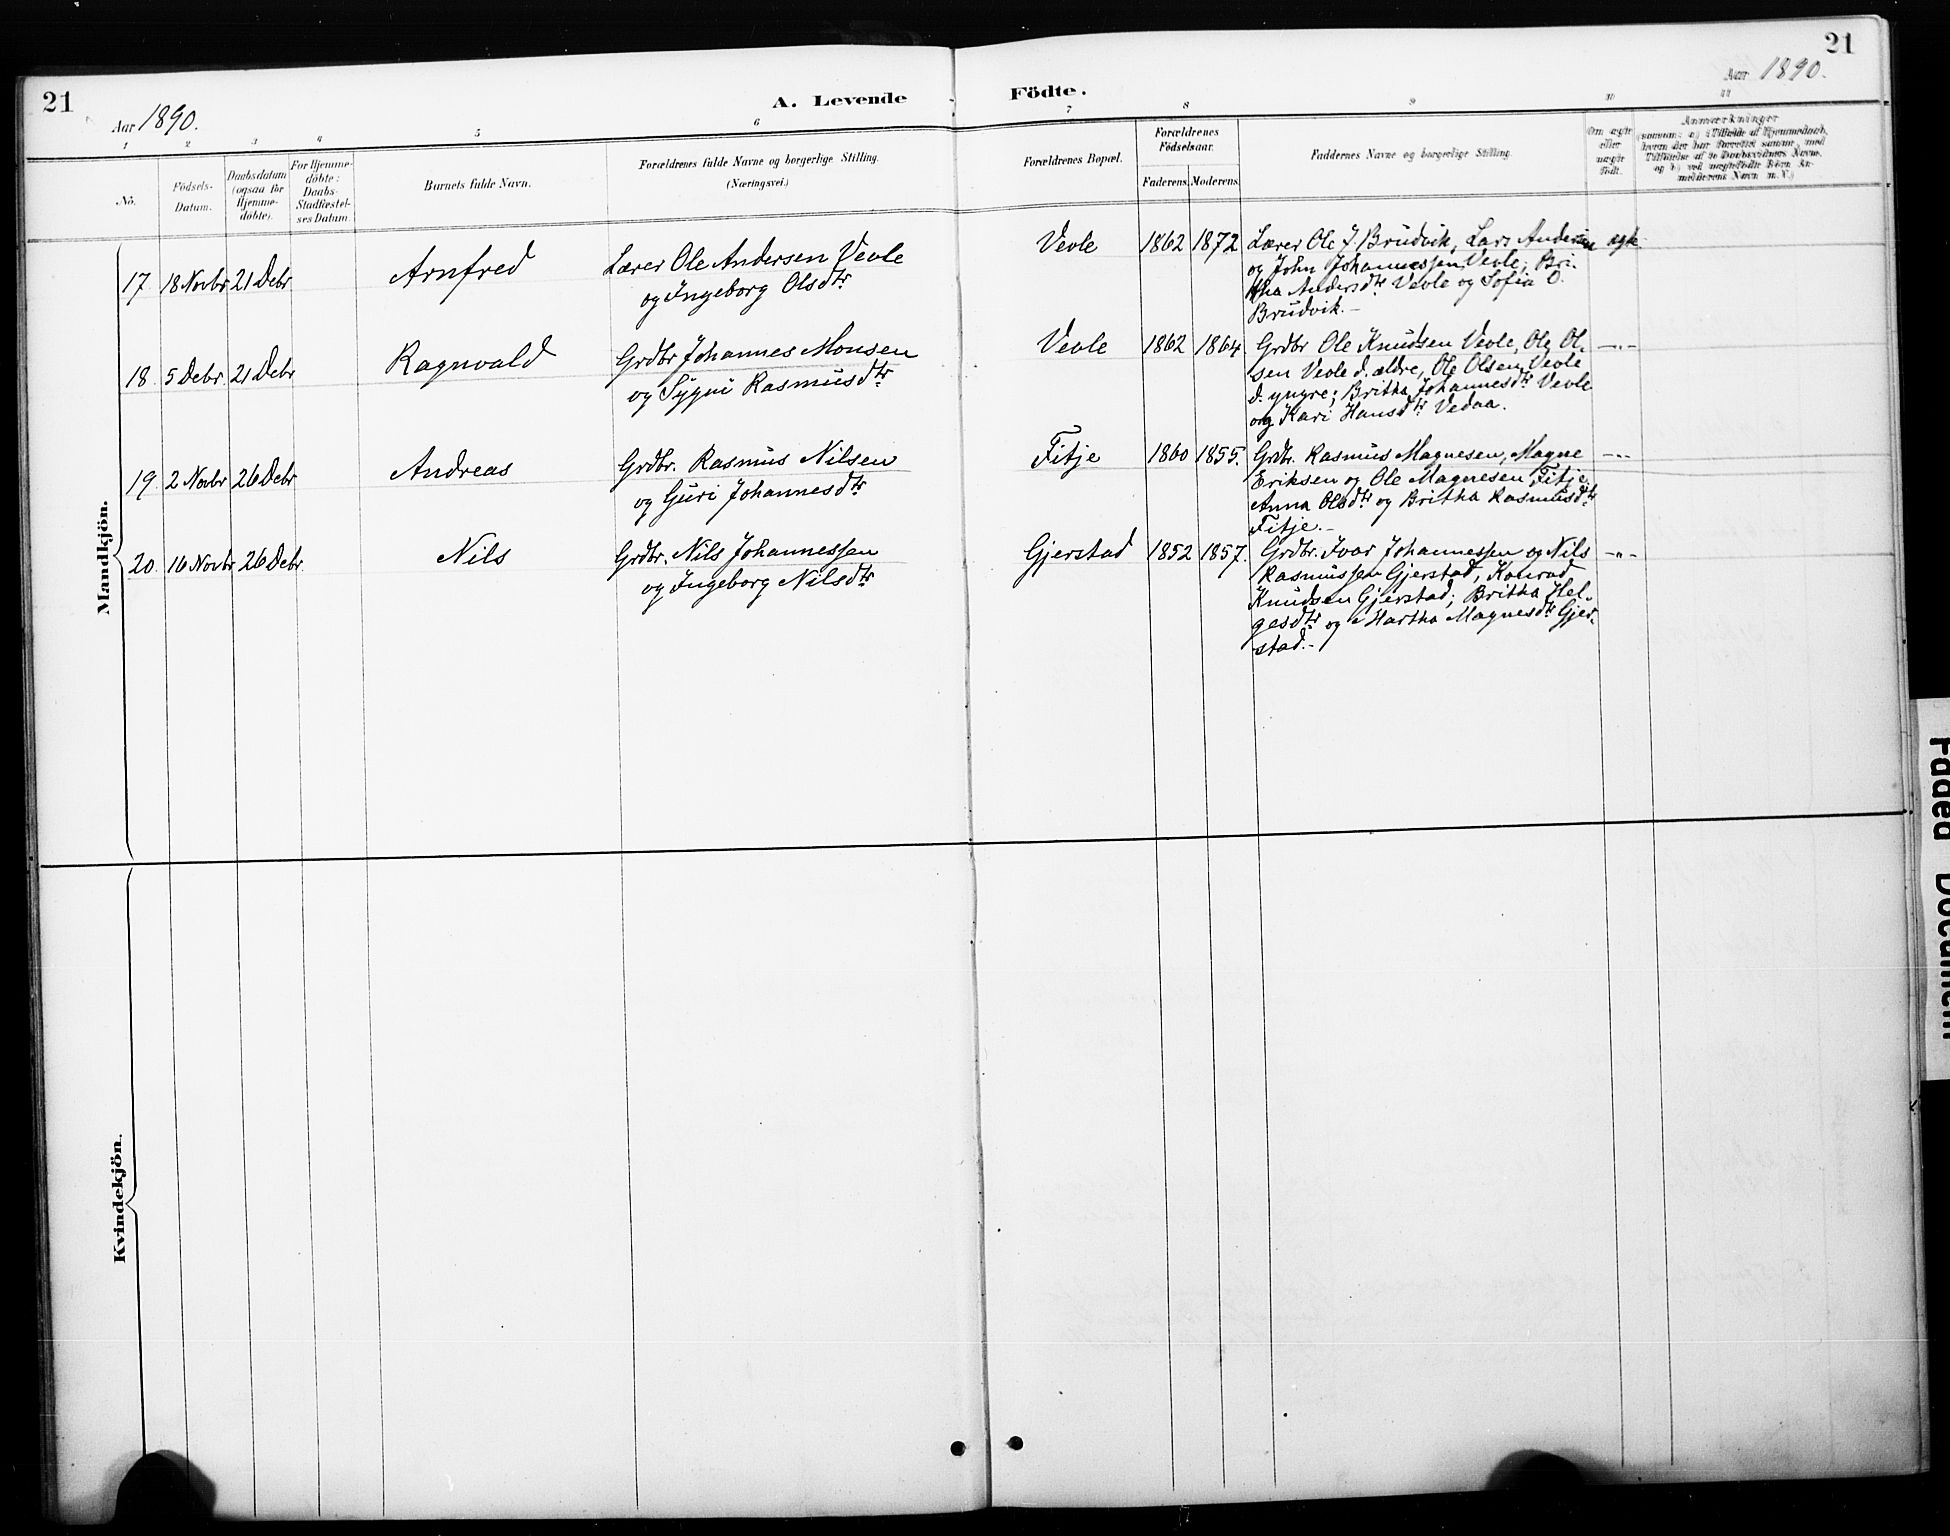 21
21
Aar 1890.
A. Levende Födte.
Aar 1890.
1 2 3 4 5 6 7 8 9 10 11
No.
Födsels-
Datum.
Daabsdatum
(ogsaa for
Hjemme-
döbte).
For Hjemme-
döbte:
Daabs-
Stadfæstel-
ses Datum
Barnets fulde Navn.
Forældrenes fulde Navne og borgerlige Stilling.
(Næringsvei.)
Forældrenes Bopæl.
Forældrenes
Födselsaar.
Faderens.
Moderens.
Faddernes Navne og borgerlige Stilling.
Om ægte
eller
uægte
födt.
Anmærkninger
Mandkjön.
17 18 Novbr 21 Debr Arnfred
Lærer Ole Andersen Vevle
og Ingeborg Olsdtr
Vevle 1862 1872
Lærer Ole J. Brudvik, Lars Andersen
og John Johannessen Vevle; Bri-
tha Andersdtr Vevle og Sofia O.
Brudvik.-
ægte
18 5 Debr 21 Debr Ragnvald
Grdbr Johannes Monsen
og Sygni Rasmusdtr
Vevle 1862 1864
Grdbr Ole Knudsen Vevle, Ole Ol-
sen Vevle d. ældre, Ole Olsen Vevle
d. yngre; Britha Johannesdtr Vevle
og Kari Hansdtr Vedaa.
-"-
19. 2 Novbr 26 Debr Andreas
Grdbr. Rasmus Nilsen
og Guri Johannesdtr
Fitje 1860 1855.
Grdbr. Rasmus Magnesen, Magne
Eriksen og Ole Magnesen Fitje;
Anna Olsdtr og Britha Rasmusdtr
Fitje.-
-"-
20. 16 Novbr 26 Debr Nils
Grdbr. Nils Johannessen
og Ingeborg Nilsdtr
Gjerstad 1852 1857.
Grdbr. Ivar Johannessen og Nils
Rasmussen Gjerstad, Konrad
Knudsen Gjerstad; Britha Hel-
gesdtr og Martha Magnesdtr Gjer-
stad.-
-"-
Kvindekjön.
Faded Document